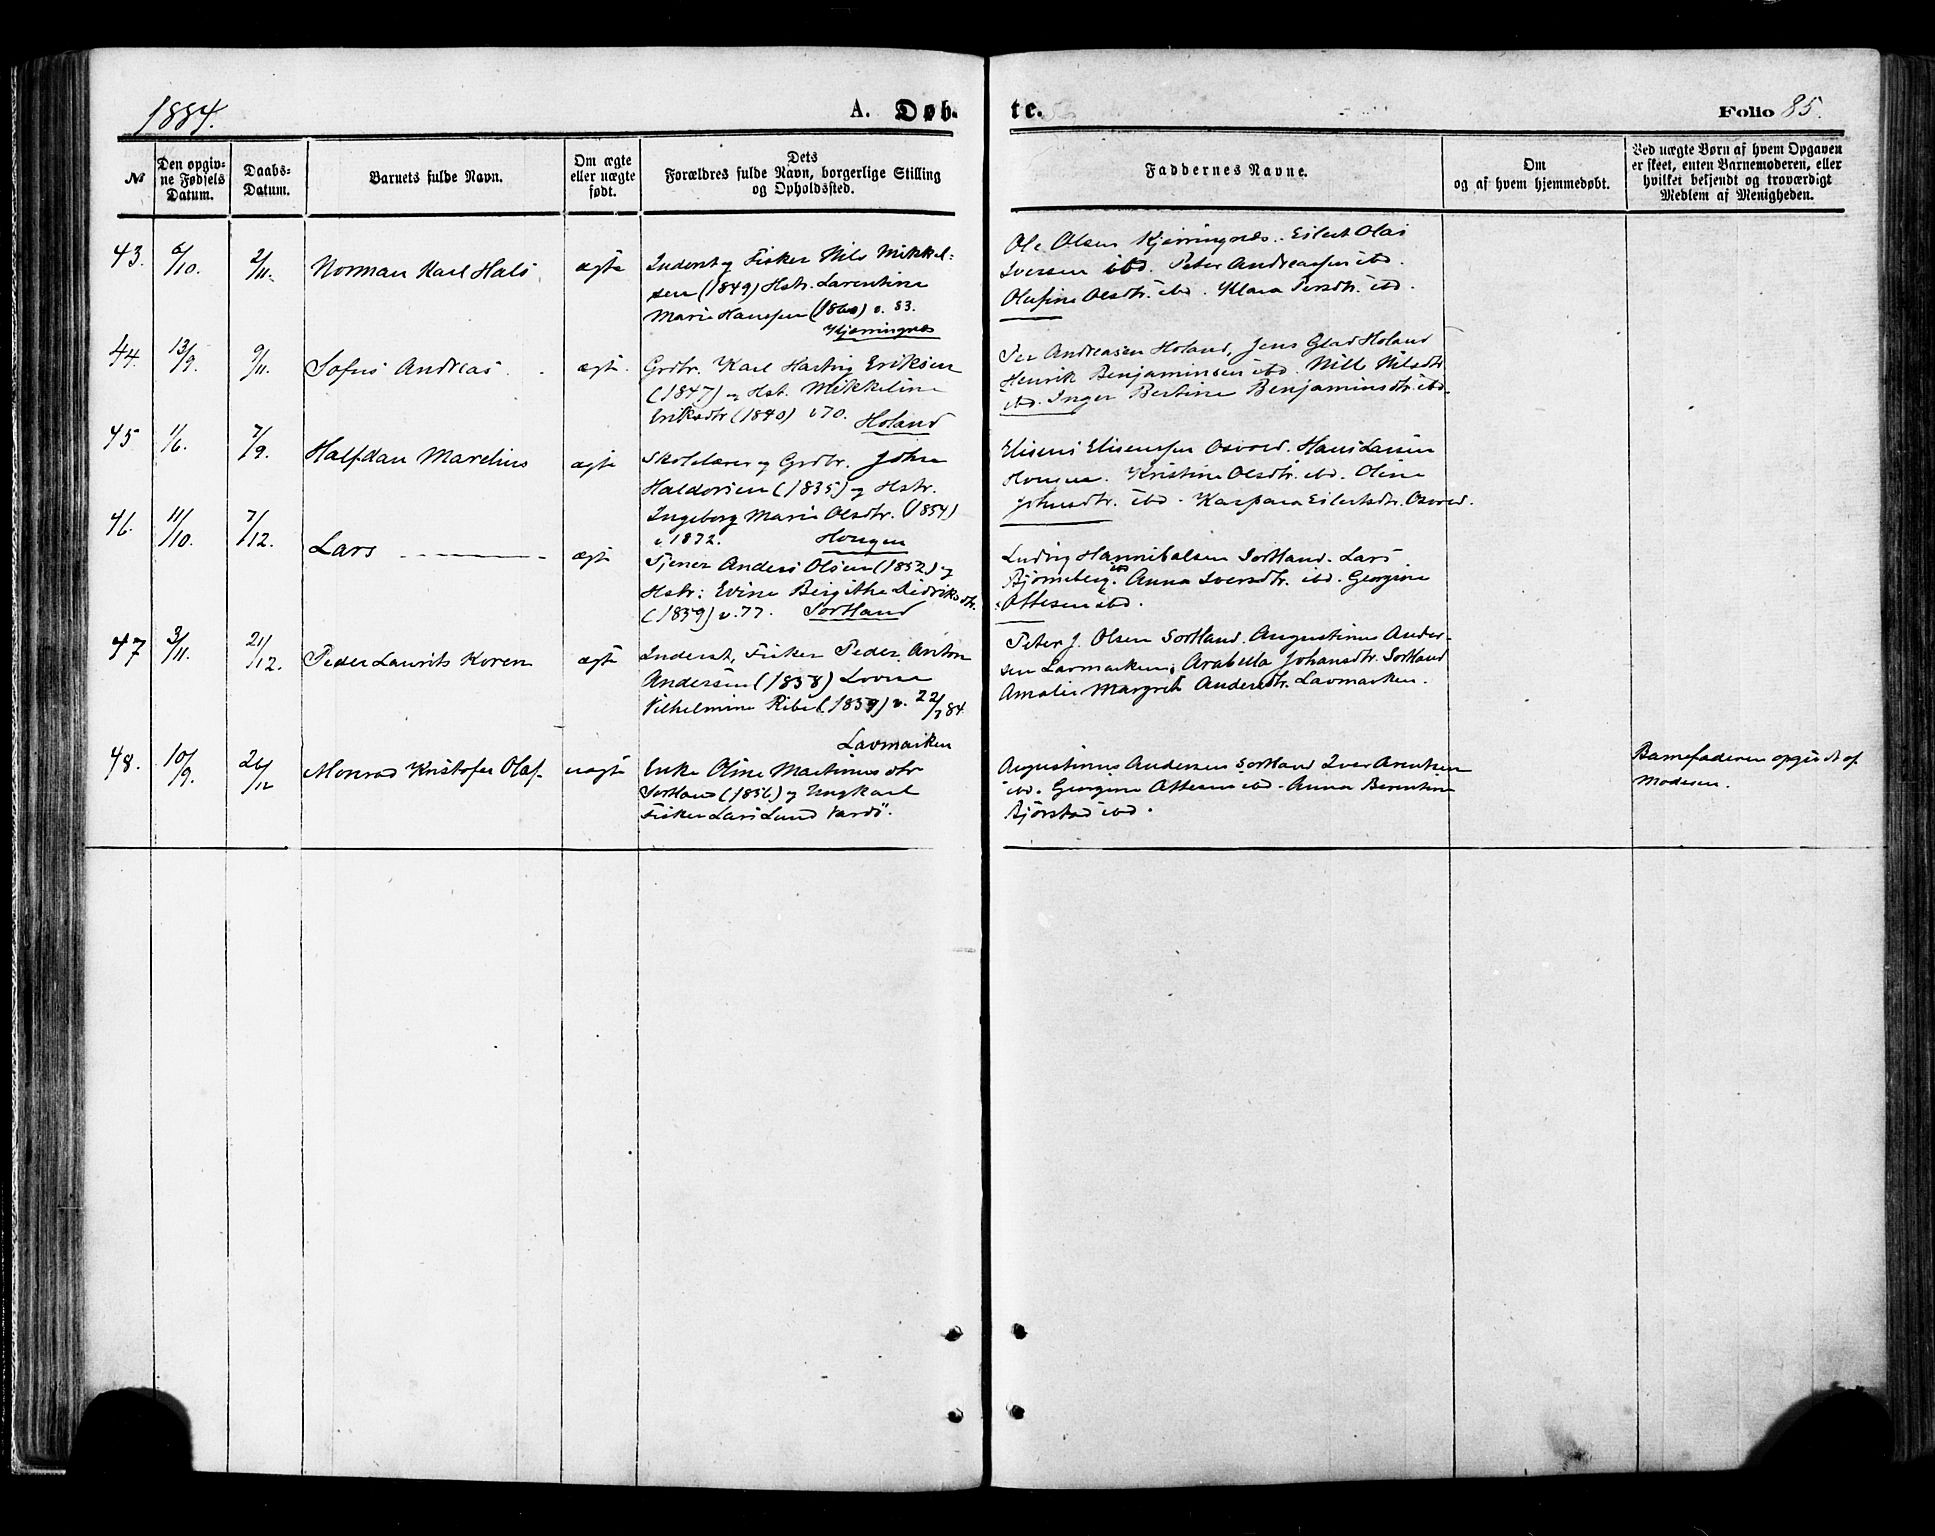 1884.
A. Døb-
te.
Folio 85.
№
Den opgiv-
ne Fødsels
Datum.
Daabs-
Datum.
Barnets fulde Navn.
Om ægte
eller uægte
født.
Dets
Forældres fulde Navn, borgerlige Stilling
og Opholdssted.
Faddernes Navne.
Om
og af hvem hjemmedøbt.
Ved uægte Børn af hvem Opgaven
er skeet, enten Barnemoderen, eller
hvilket bekjendt og troværdigt
Medlem af Menigheden.
43. 6/10. 2/11. Norman Karl Hals ægte
Inderst og Fisker Nils Mikkel-
sen (1849) Hstr. Larentine
Marie Hanssen (1860) v. 83.
Kjerringnes
Ole Olsen Kjerringnes. Eilert Olai
Iversen ibd. Peter Andreassen ibd.
Olufine Olsdtr. ibd. Klara Persdtr. ibd.
44. 13/9. 9/11. Sofus Andreas ægte.
Grdbr. Karl Hartvig Eriksen
(1847) og Hst. Mikkeline
Eriksdtr (1840) v 70.
Holand
Per Andreasen Holand, Jens Glad Holand
Henrik Benjaminsen ibd. Nille Nilsdtr
ibd. Inger Bertine Benjaminsdtr. ibd.
45 1/6. 7/9. Halfdan Marelius ægte
Skolelærer og Grdbr. John
Haldorsen (1835) og Hstr.
Ingeborg Marie Olsdtr. (1854)
v 1872. Hougen
Eliseus Eliseussen Osvold. Hans Larsen
Hougen. Kristine Olsdtr. ibd. Oline
Johnsdtr. ibd. Kaspara Eilertsdtr. Osvold.
46. 11/10. 7/12. Lars ægte
Tjener Anders Olsen (1852) og
Hstr: Evine Birgithe Didriksdtr.
(1859) v. 77. Sortland
Ludvig Hannibalsen Sortland. Lars
Bjørneberg ibd. Anna Iversdtr. ibd. Georgine
Ottesen ibd.
47 3/11. 21/12. Peder Laurits Koren ægte
Inderst, Fisker Peder Anton
Andersen (1858) Lovise
Vilhelmine Ribe (1859) v. 22/7 84
Lavmarken
Peter J. Olsen Sortland. Augustinus Ander-
sen Lavmarken, Arabella Johansdtr. Sortland
Amalie Margret Andersdtr. Lavmarken.
48. 10/9. 26/12 Monrad Kristofer Olaf uægte
Enke Oline Martinusdtr
Sortland (1856) og Ungkarl
Fisker Lars Lund Vardø.
Augustinus Andersen Sortland Iver Arentsen
ibd. Georgine Ottesen ibd. Anna Berentine
Bjørstad ibd.
Barnefaderen opgivet af
Moderen.